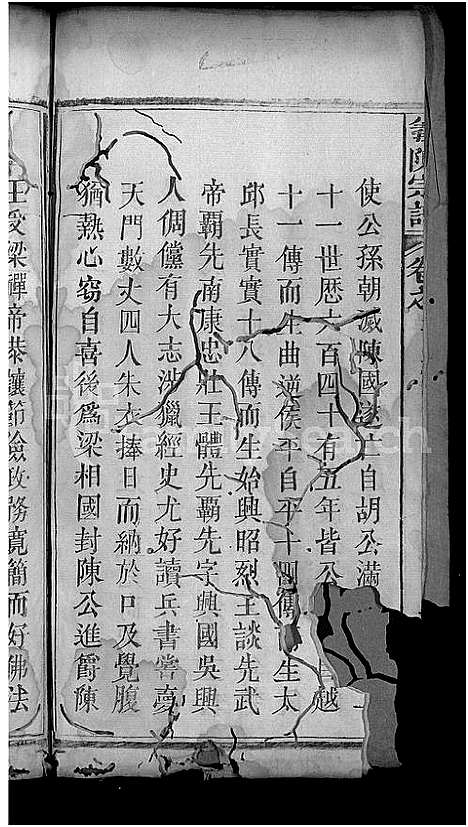 使公孫朝滅陳國遂亡自胡公滿
十一世歷六百四十有五年皆公 越
十一傳而生曲逆侯平自平十四傳 生太
邱長實實十八傳而生始興昭烈王談先武
帝霸先南康忠壯王體先霸先字興國吳興
人倜儻有大志涉獵經史尤好讀兵書嘗夢
天門數丈四人朱衣捧日而納於口及覺腹
猶熱心窃自喜後為梁相國封陳公進爵陳
王受梁禪帝恭儉節儉政務寬簡而好佛法